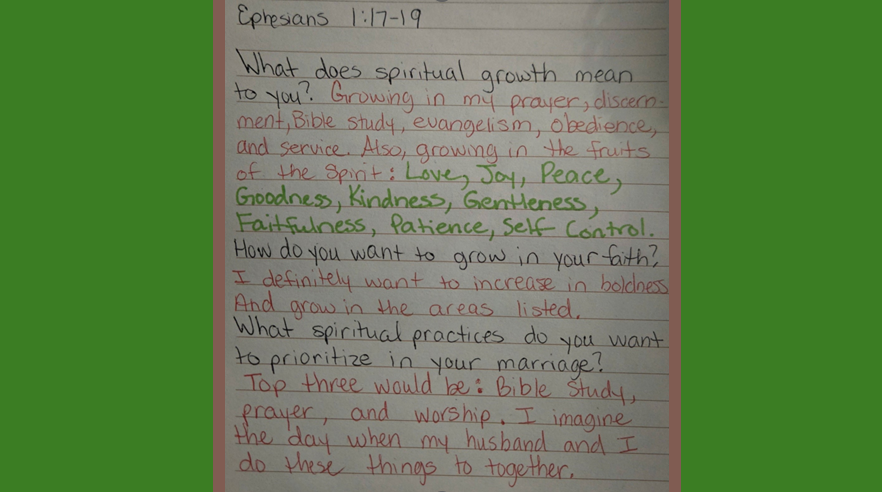 Ephesians 1:17-19
What does spiritual growth mean
to you? Growing in my prayer, discern-
ment, Bible study, evangelism, obedience,
and service. Also, growing in the fruits
of the Spirit: Love, Joy, Peace,
Goodness, Kindness, Gentleness,
Faitfulness, Patience, Self-Control.
How do you want to grow in your faith?
I definitely want to increase in boldness
And grow in the areas listed.
What spiritual practices do you want
to prioritize in your marriage?
Top three would be: Bible Study,
prayer, and worship. I imagine
the day when my husband and I
do these things to together.